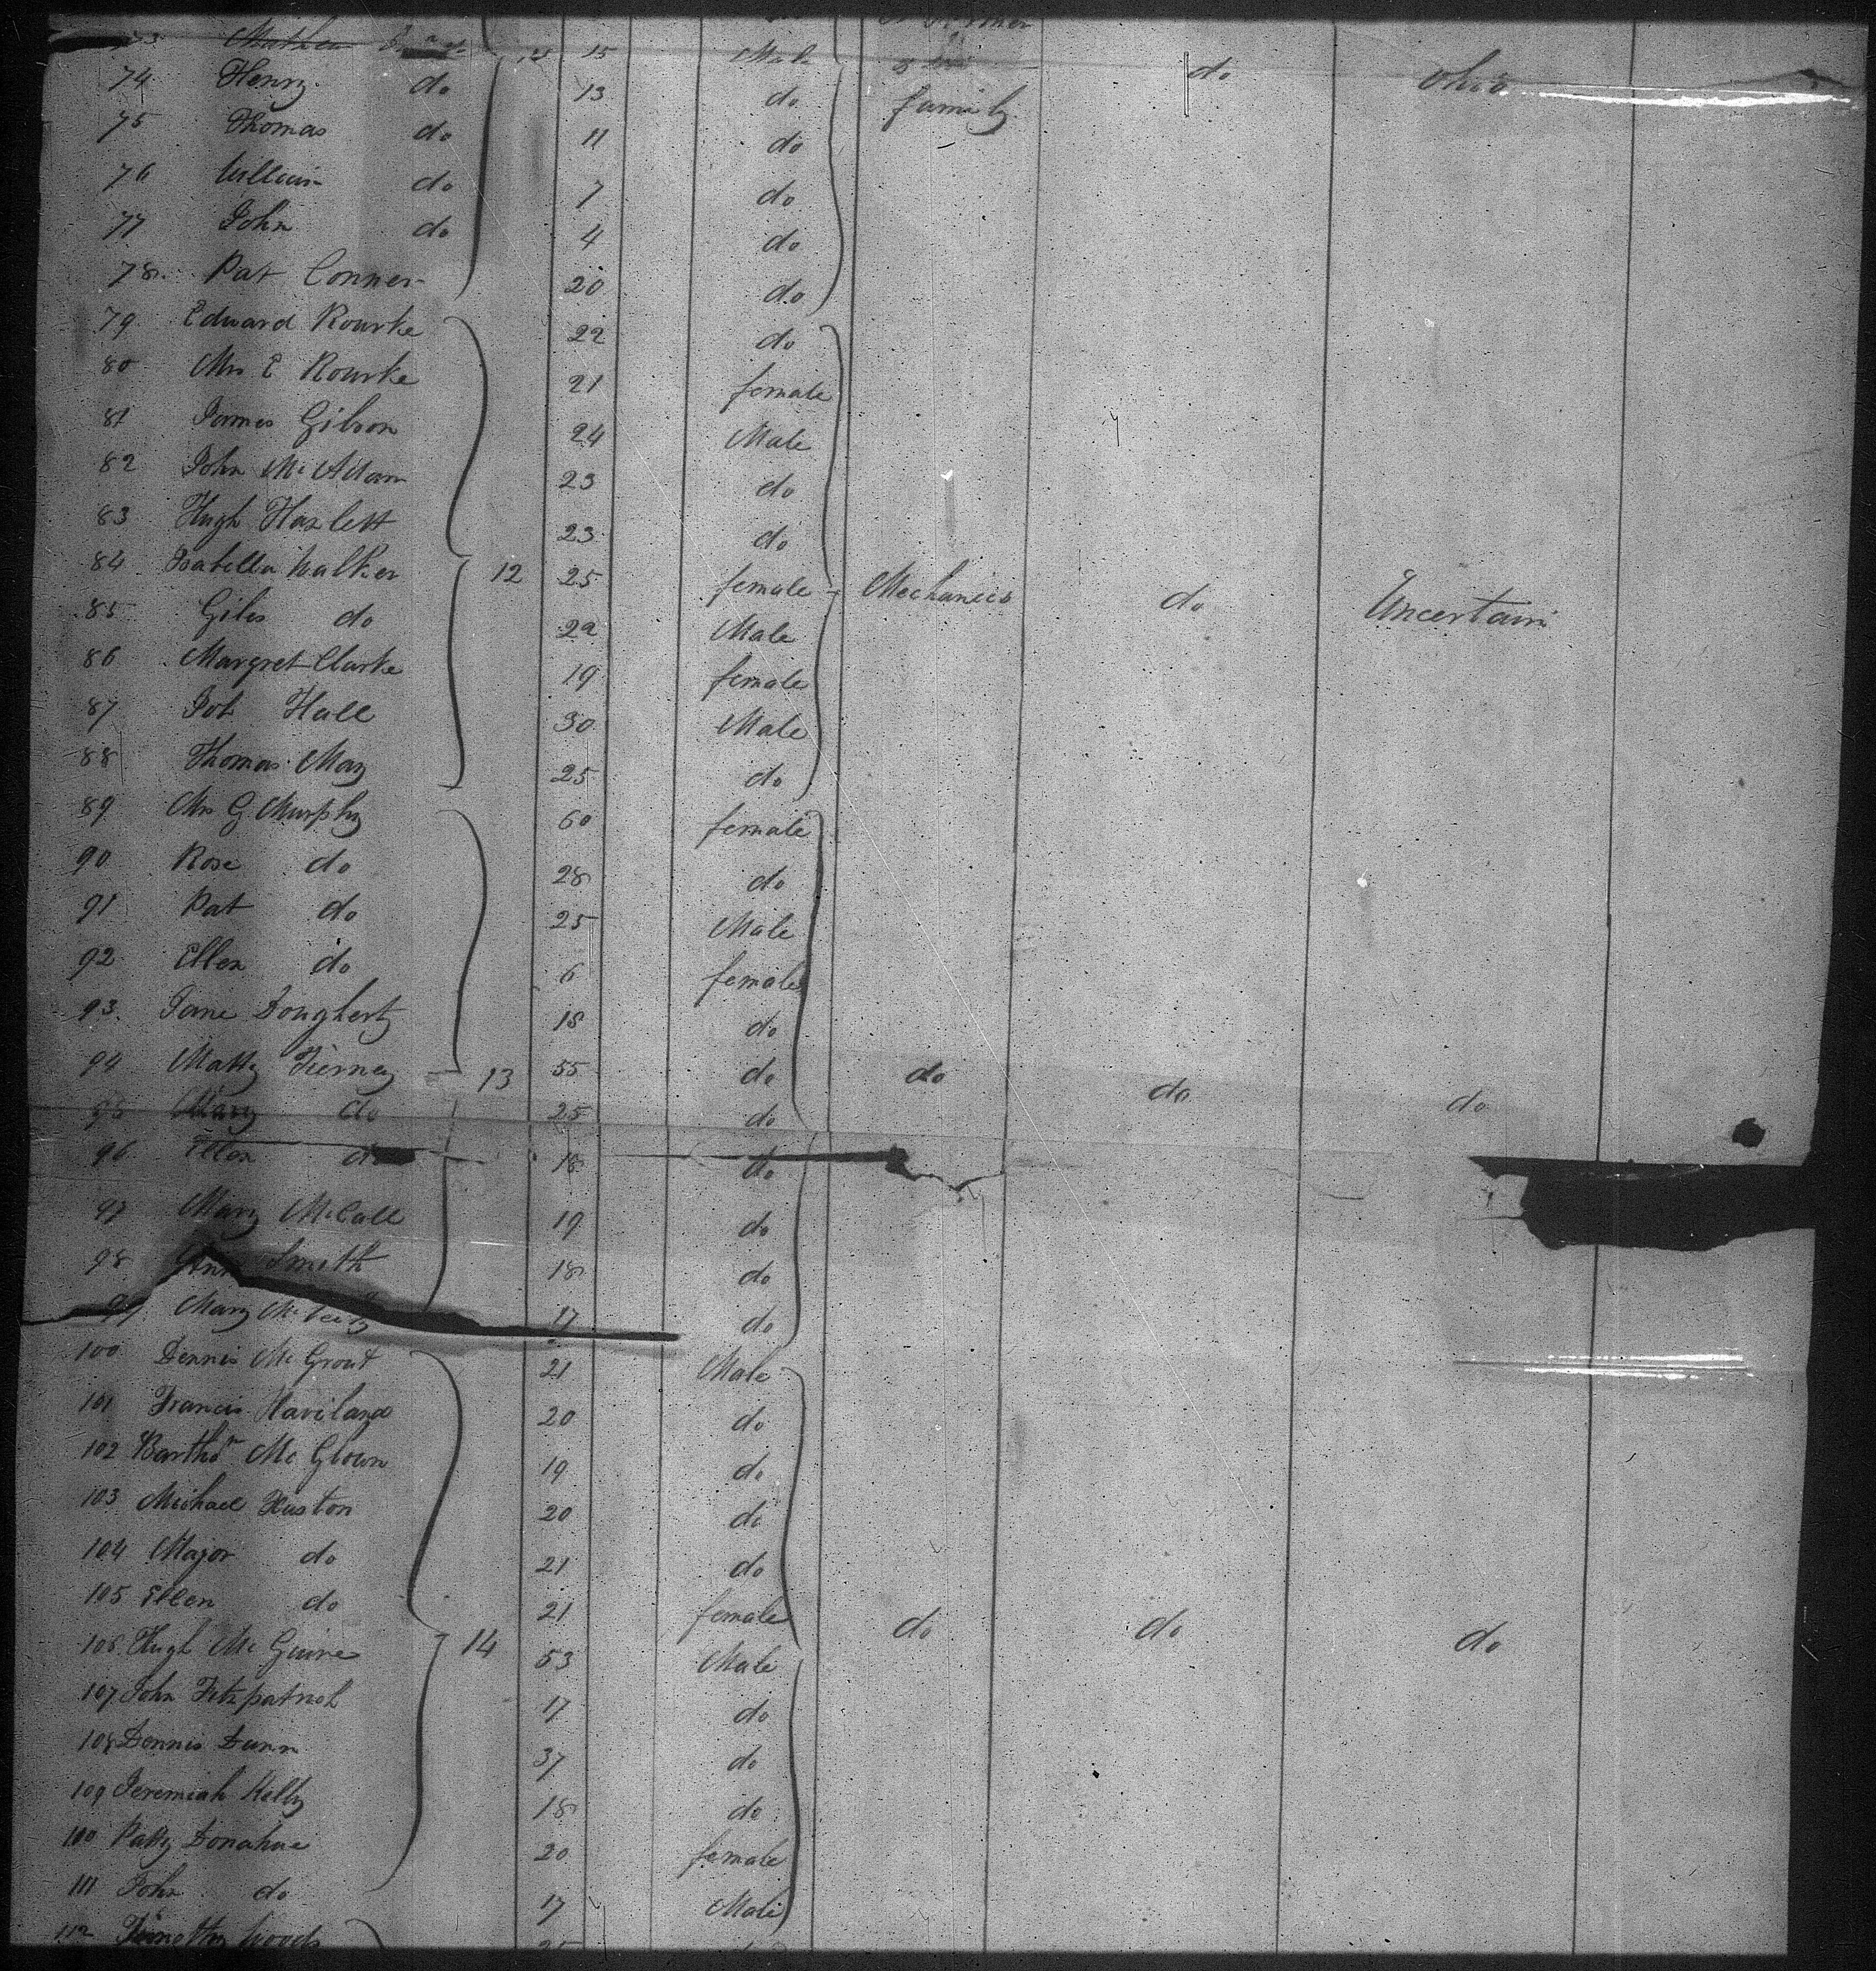 Farmer
73 Mathew 15 Male
74 Henry do 13 do family do Ohio
75 Thomas do 11 do
76 William do 7 do
77 John do 4 do
78 Pat Conner 20 do
79 Edward Rourke 22 do
80 Mrs E Rourke 21 female
81 James Gibson 24 Male
82 John McAdam 23 do
83 Hugh Haslett 23 do
84 Isabella Walker 12 25 female Mechanics do Uncertain
85 Giles do 22 Male
86 Margret Clarke 19 female
87 Job Hall 30 Male
88 Thomas May 25 do
89 Mrs G Murphy 60 female
90 Rose do 28 do
91 Pat do 25 Male
92 Ellen do 6 female
93 Jane Dougherty 18 do
94 Matty Tierney 13 55 do do do do
95 Mary do 25 do
96 Ellen do 18 do
97 Mary McCall 19 do
98 Ann Smith 18 do
99 Mary 17 do
100 Dennis McGrout 21 Male
101 Francis Haviland 20 do
102 Barthw McGlown 19 do
103 Michael Huston 20 do
104 Major do 21 do
105 Ellen do 21 female do do do
106 Hugh McGuire 14 53 Male
107 John Fitzpatrick 17 do
108 Dennis Dunn 37 do
109 Jeremiah Kelly 18 do
100 Patty Donahue 20 female
111 John do 17 Male
112 Timothy Woods 25